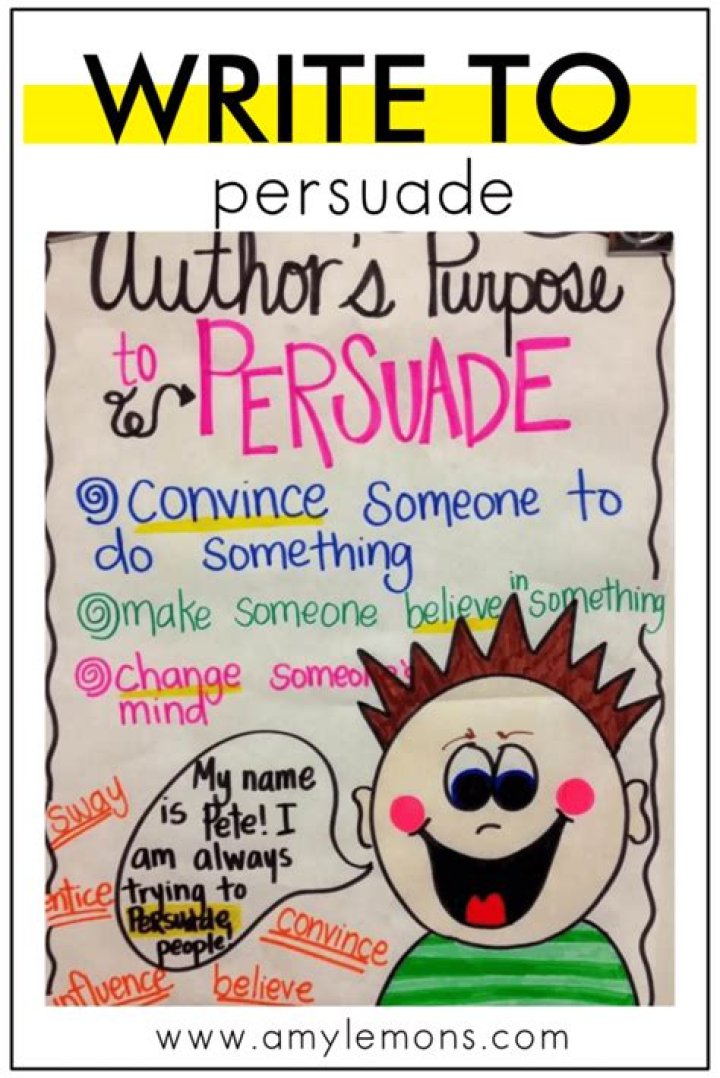 WRITE TO
persuade
Author's Purpose
to PERSUADE
Convince someone to
do something
make someone believe in something
change someone's
mind
My name
is Pete! I
am always
trying to
Persuade
people!
sway
entice
convince
influence
believe
www.amylemons.com